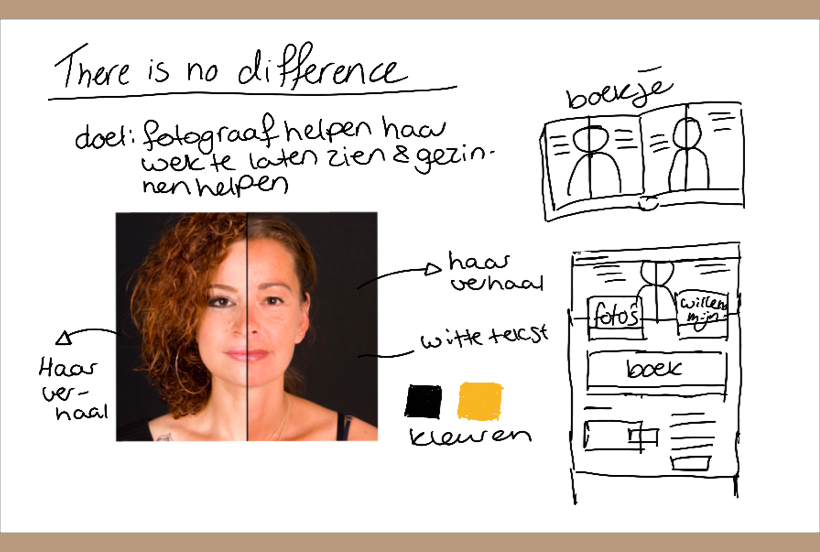 There is no difference
doel: fotograaf helpen haar
werk te laten zien & gezin-
nen helpen
haar
verhaal
witte tekst
Haar
ver-
haal
kleuren
boekje
foto's
boek